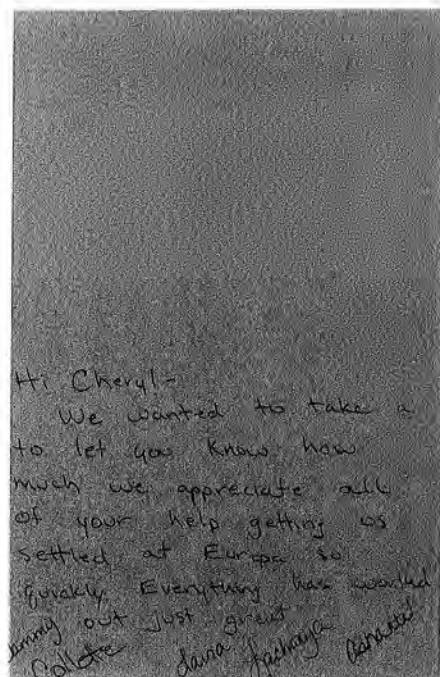 Hi Cheryl-
We wanted to take a
to let you know how
much we appreciate all
of your help getting us
settled at Europa so
quickly. Everything has worked
out just great
Collette